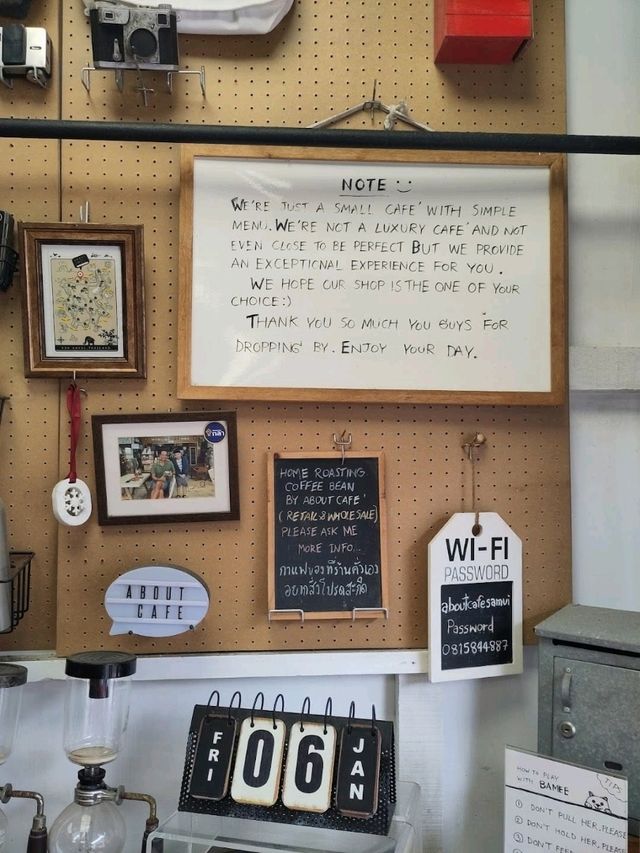 NOTE
WE'RE JUST A SMALL CAFE' WITH SIMPLE
MENU. WE'RE NOT A LUXURY CAFE' AND NOT
EVEN CLOSE TO BE PERFECT BUT WE PROVIDE
AN EXCEPTIONAL EXPERIENCE FOR YOU.
WE HOPE OUR SHOP IS THE ONE OF YOUR
CHOICE:)
THANK YOU SO MUCH YOU GUYS FOR
DROPPING BY. ENJOY YOUR DAY.
HOME ROASTING
COFFEE BEAN
BY ABOUT CAFE'
(RETAIL & WHOLESALE)
PLEASE ASK ME
MORE INFO...
กาแฟของที่ร้านคั่วเอง
WI-FI
PASSWORD
aboutcafesamui
Password
0815844887
ABOUT
CAFE
FRI
06
JAN
HOW TO PLAY
WITH BAMEE
① DON'T PULL HER, PLEASE
② DON'T HOLD HER, PLEASE
③ DON'T FEED